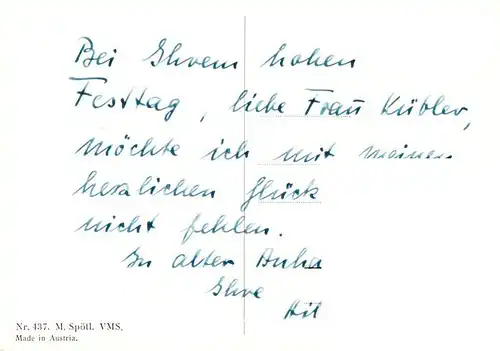 Bei Ihrem hohen
Festtag, liebe Frau Kübler,
möchte ich mit meinen
herzlichen Glück
nicht fehlen.
In alter Anhä
Ihre
Nr. 437. M. Spötl. VMS.
Made in Austria.